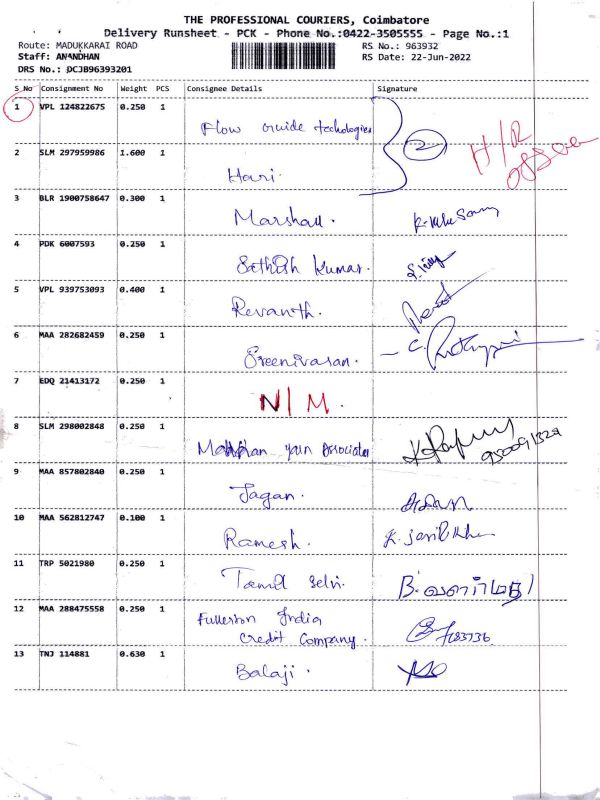 THE PROFESSIONAL COURIERS, Coimbatore
Delivery Runsheet - PCK - Phone No.:0422-3505555 - Page No.:1
Route: MADUKKARAI ROAD
RS No.: 963932
Staff: ANANDHAN
RS Date: 22-Jun-2022
DRS No.: DCJB96393201
S No Consignment No Weight PCS Consignee Details Signature
1 VPL 124822675 0.250 1
Flow Guide techologies
2
H/R
2 SLM 297959986 1.600 1
Hari.
3 BLR 1900758647 0.300 1
Marshall.
4 PDK 6007593 0.250 1
Sathish Kumar.
5 VPL 939753093 0.400 1
Revanth.
6 MAA 282682459 0.250 1
Sreenivasan.
7 EDQ 21413172 0.250 1
N/M.
8 SLM 298002848 0.250 1
yarn Associates
9 MAA 857802840 0.250 1
Jagan.
10 MAA 562812747 0.100 1
Ramesh.
11 TRP 5021980 0.250 1
Tamil Selvi.
12 MAA 288475558 0.250 1
Fullerton India
Credit Company.
13 TNJ 114881 0.630 1
Balaji.